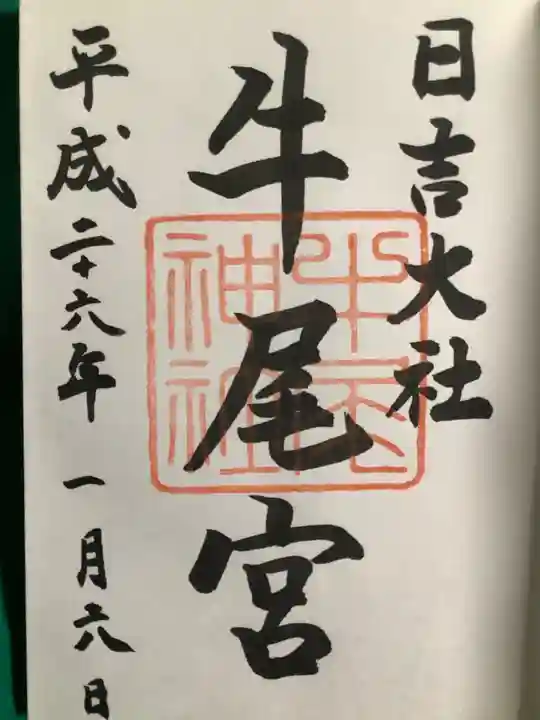 日吉大社
牛尾宮
平成二十六年 一月六日
牛尾
神社